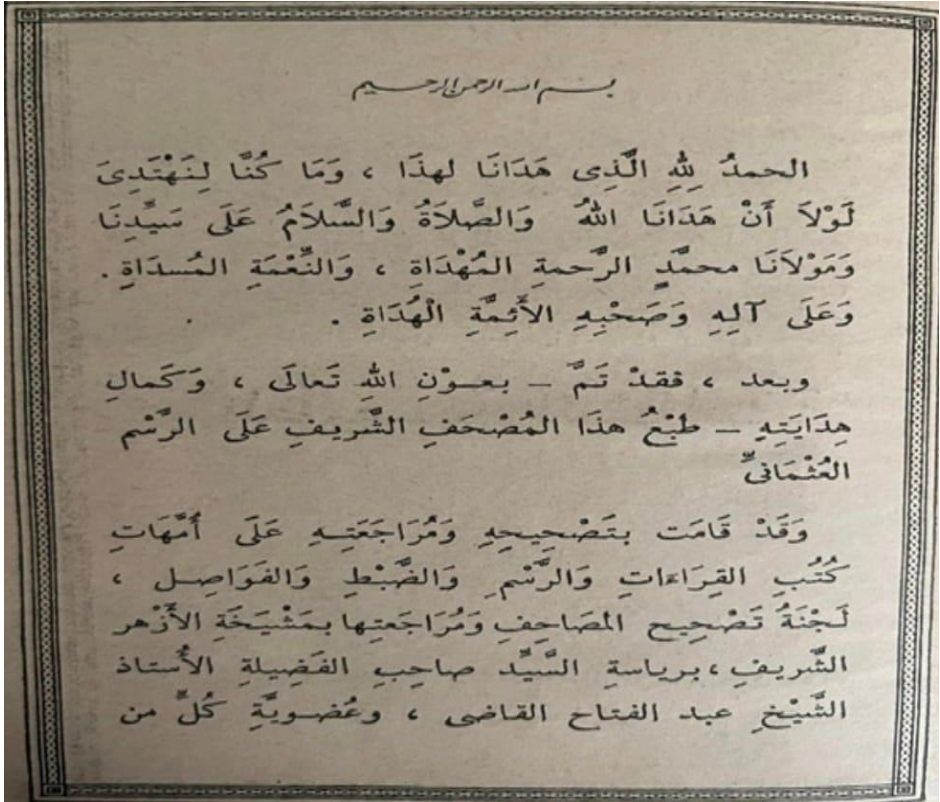 بسم الله الرحمن الرحيم
الحمدُ لِلهِ الَّذِى هَدَانَا لهذَا ، وَمَا كُنَّا لِنَهْتَدِىَ
لَوْلاَ أَنْ هَدَانَا اللهُ وَالصَّلاَةُ وَالسَّلاَمُ عَلَى سَيِّدِنَا
وَمَوْلاَنَا محمَّدٍ الرَّحمةِ المُهْدَاةِ ، وَالنِّعْمَةِ المُسدَاةِ .
وَعَلَى آلِهِ وَصَحْبِهِ الأَئِمَّةِ الْهُدَاةِ .
وبعد ، فقدْ تَمَّ – بعوْنِ اللهِ تَعالَى ، وَكَمالِ
هِدَايَتِهِ – طَبْعُ هذَا المُصْحَفِ الشَّرِيفِ عَلَى الرَّسْم
العُثْمَانىِّ
وَقَدْ قَامَت بتَصْحِيحِهِ وَمُرَاجَعَتِهِ عَلَى أُمَّهَاتِ
كُتُبِ القِرَاءَاتِ وَالرَّسْمِ وَالضَّبْطِ وَالفَوَاصِل ،
لَجْنَةُ تَصْحِيح المَصَاحِفِ وَمُرَاجَعَتِها بمَشْيَخَةِ الأَزْهر
الشَّريفِ ، برياسةِ السَّيِّد صاحِبِ الفَضِيلةِ الأُستاذ
الشَّيْخِ عبد الفتاح القاضى ، وعُضويَّةِ كُلٍّ من